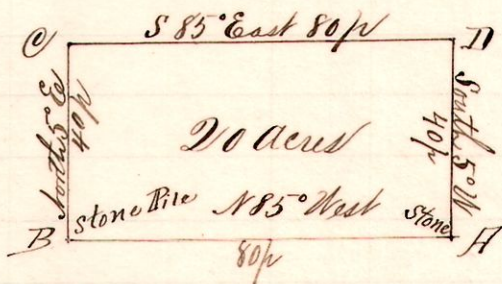 S 85° East 80p
C
D
North 5° E
40p
South 5° W
40p
20 acres
Stone Pile
N 85° West
Stone
B
A
80p